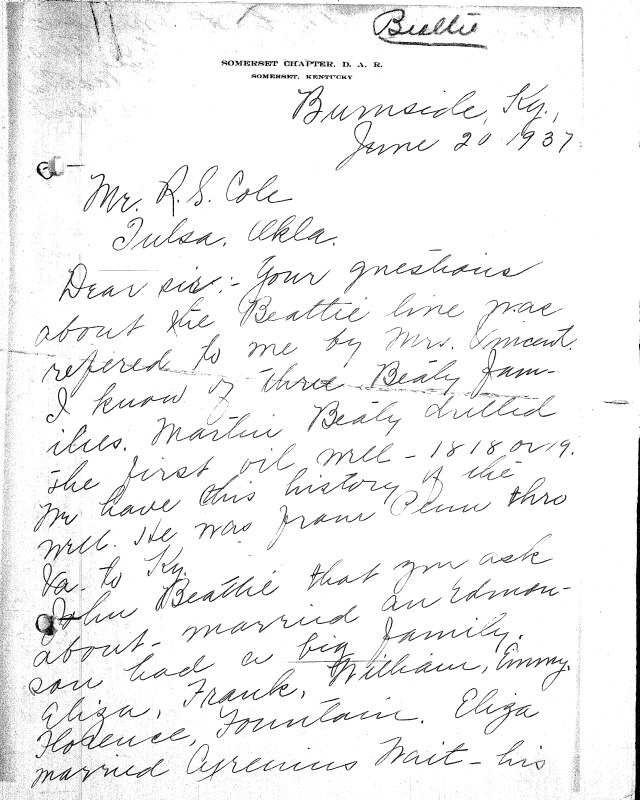 Beattie
SOMERSET CHAPTER, D. A. R.
SOMERSET, KENTUCKY
Burnside, Ky.,
June 20 1937
Mr. R. S. Cole
Tulsa, Okla.
Dear sir:- Your questions
about the Beattie line was
refered to me by Mrs. Vincent.
I know of three Beaty fam-
ilies. Martin Beaty drilled
the first oil well - 1818 or 19.
We have this history of the
well. He was from Penn thro
Va. to Ky.
John Beattie that you ask
about - married an Edmon-
son had a big family.
Eliza, Frank, William, Emmy.
Florence, Fountain. Eliza
married Cyrenius Wait - his